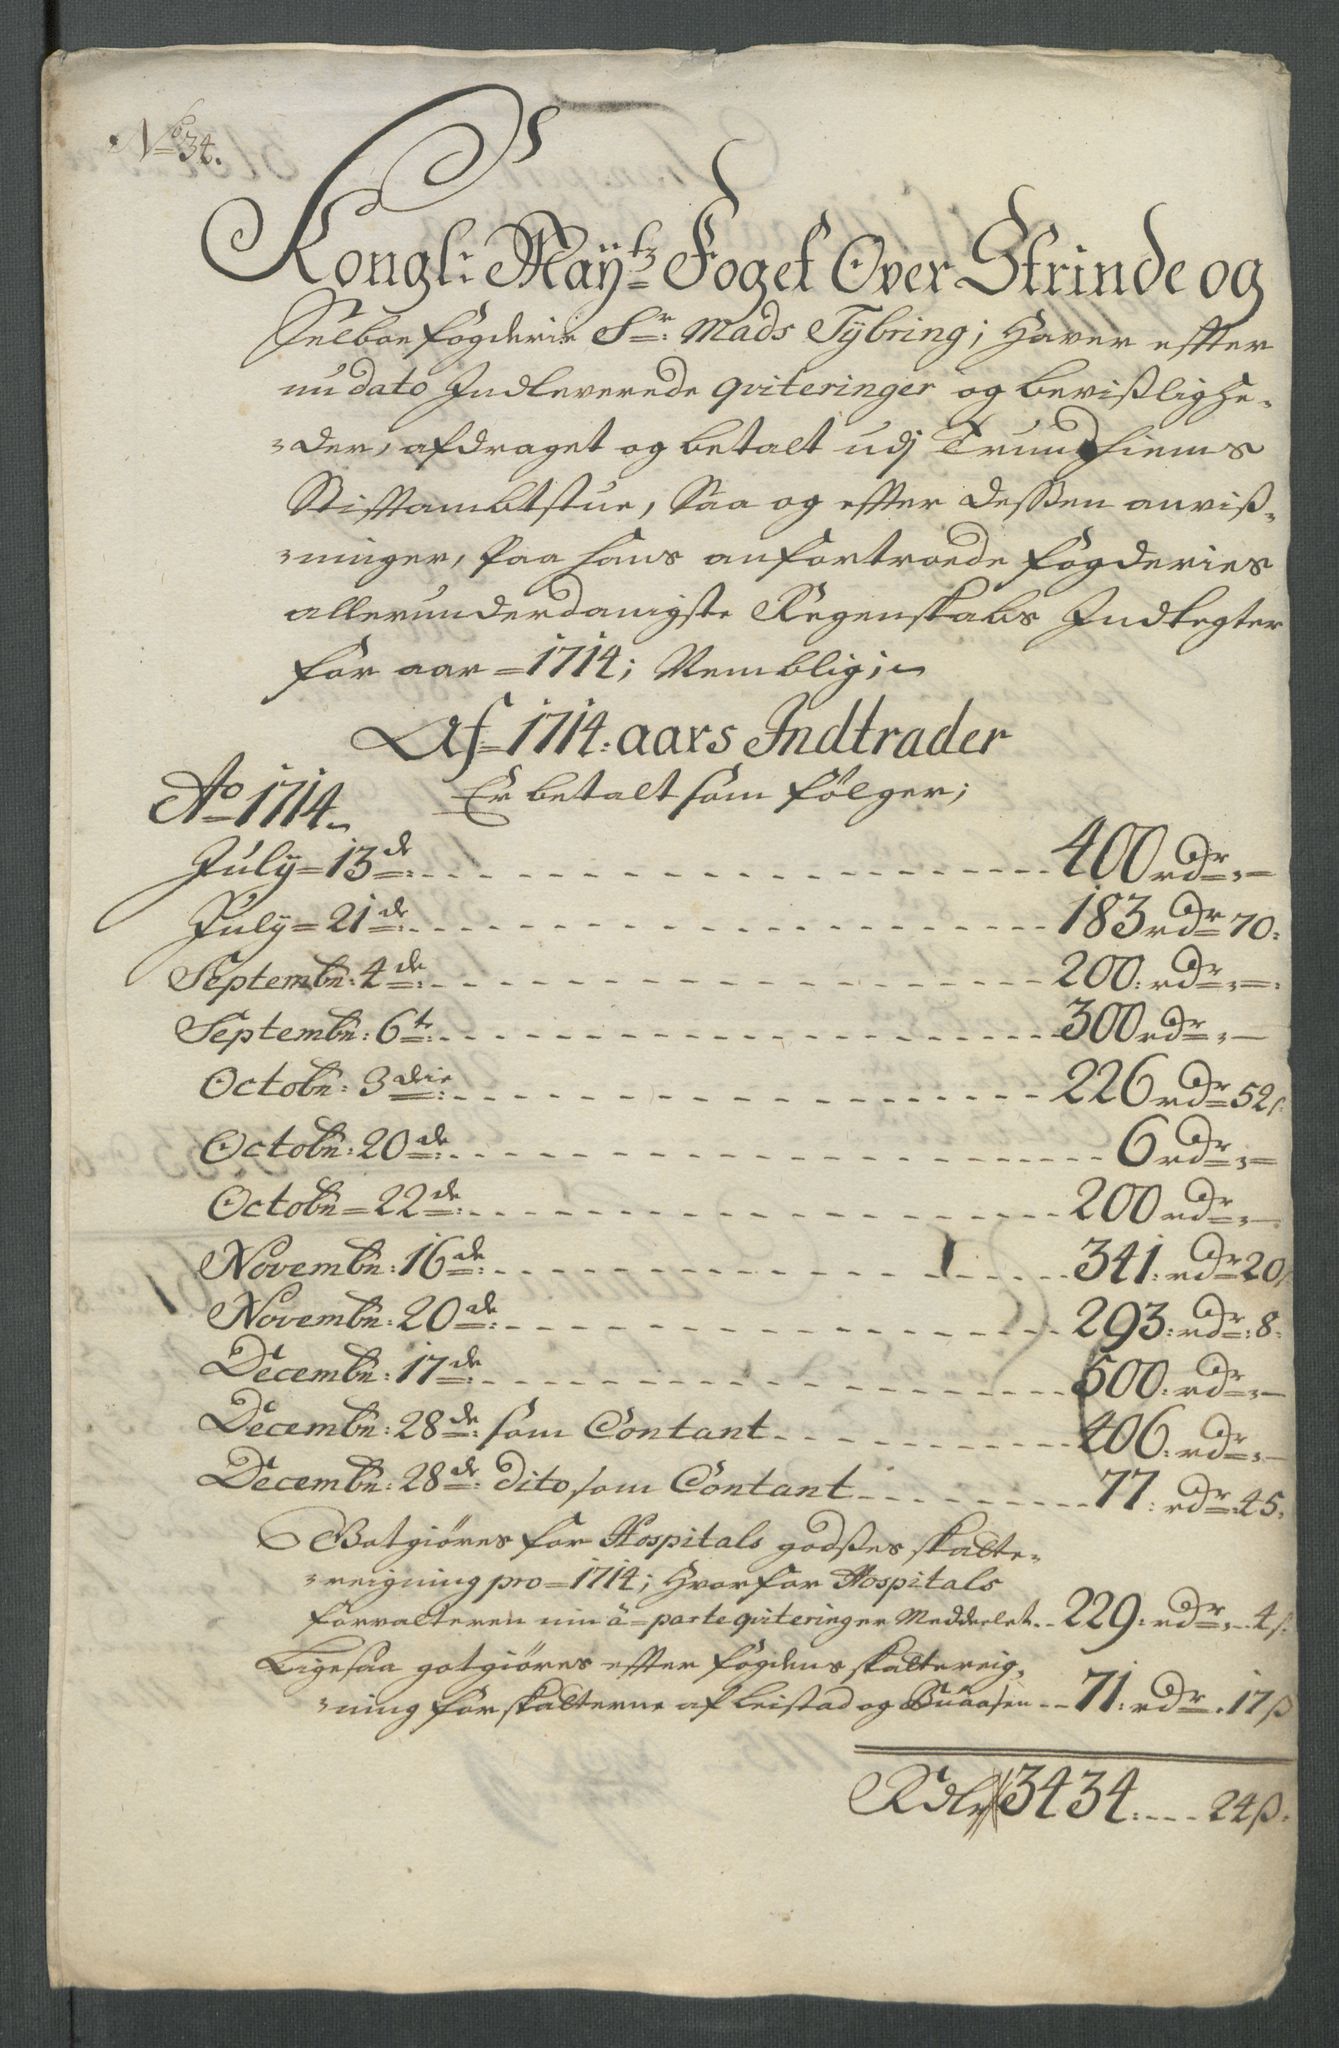 No 34.
Kongl: Maÿtz Foget Over Strinde og
Selboe fögderie Sr: Mads Tÿbring; Haver effter
nu dato Indleverede qviteringer og bevißlighe-
-der, afdraget og betalt udj Trundhiems
Stifftambtstue, Saa og effter dessen anviß-
-ninger, paa hans anfortroede fögderies
allerunderdanigste Regenskabs Indtegter
for aar = 1714; Nemblig;
Af 1714. aars Indtrader
Er betalt som fölger;
Ao 1714
July = 13de: 400 rdr -
July = 21de: 183 rdr 70:
Septembr: 4de: 200: rdr -
Septembr: 6te: 300 rdr -
Octobr: 3die: 226 rdr 52s:
Octobr: 20de: 6 rdr -
Octobr = 22de: 200 rdr -
Novembr: 16de: 341: rdr 20s
Novembr: 20de: 293: rdr: 8:
Decembr: 17de: 500: rdr -
Decembr: 28de: som Contant 406: rdr -
Decembr: 28de: dito som Contant 77: rdr: 45:
Gotgiöres for Hospitals godßes skatte-
-reigning pro = 1714; hvorfor Hospitals
forvalteren min â-parte qviteringer Meddeelet 229: rdr 4s:
Ligesaa gotgiöres effter fogdens skattereig-
-ning for skatterne af Leistad og Buaasen 71: rdr. 17ß
Rdlr 3434: 24ß.